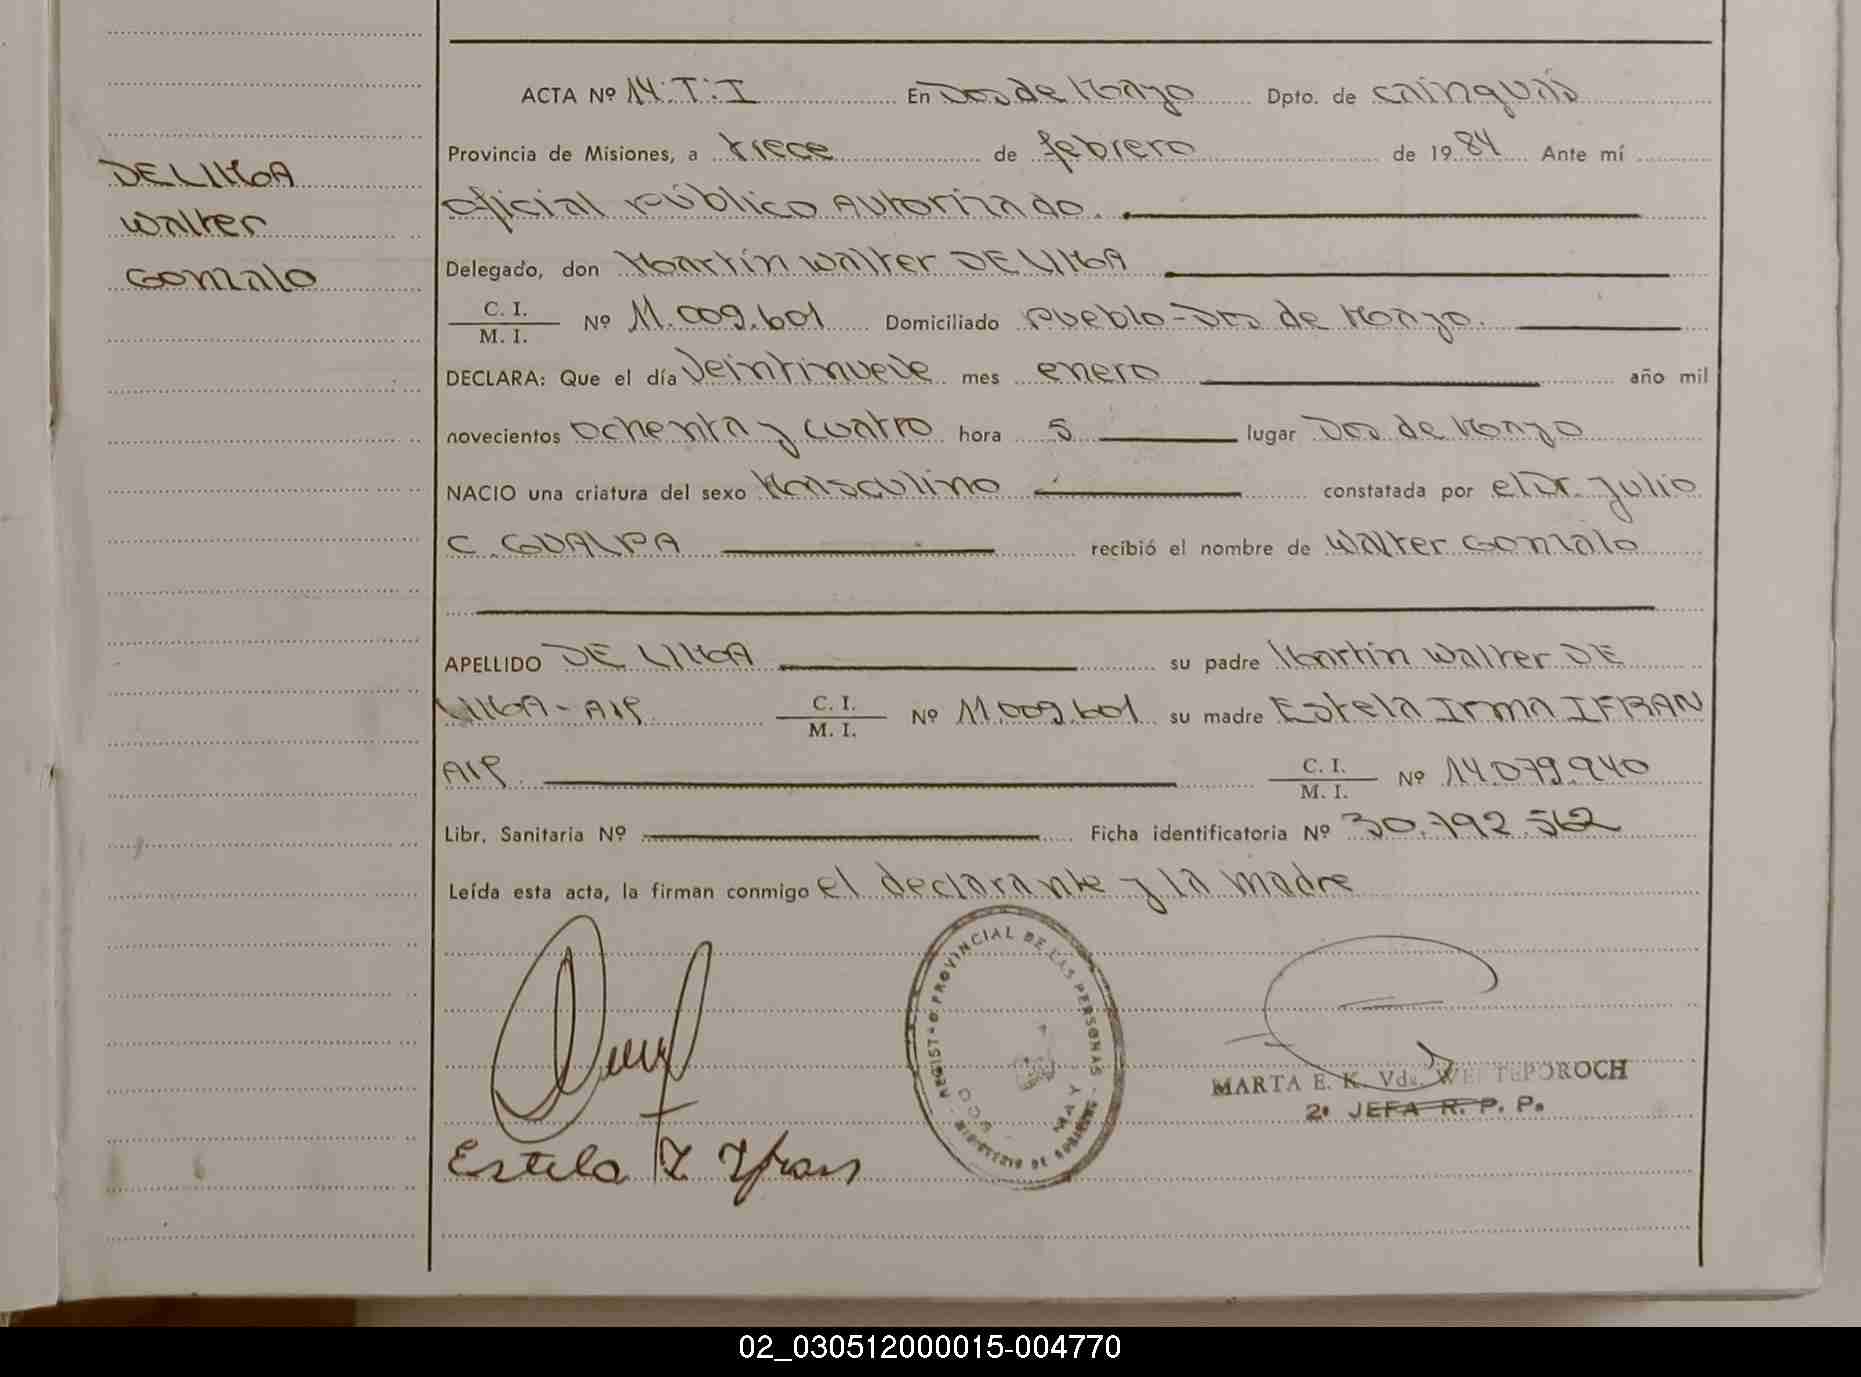 DE LIMA
Walter
Gonzalo
ACTA Nº 14.T.I En Dos de Mayo Dpto. de Cainguás
Provincia de Misiones, a trece de febrero de 1984 Ante mí
oficial público Autorizado.
Delegado, don Martín Walter DE LIMA
C. I.
M. I. Nº 11.009.601 Domiciliado Pueblo-Dos de Mayo.
DECLARA: Que el día Veintinueve mes enero año mil
novecientos ochenta y cuatro hora 5 lugar Dos de Mayo
NACIO una criatura del sexo Masculino constatada por el Dr. Julio
C. GUALPA recibió el nombre de Walter Gonzalo
APELLIDO DE LIMA su padre Martín Walter DE
LIMA - Arg. C. I.
M. I. Nº 11.009.601 su madre Estela Irma IFRAN
Arg. C. I.
M. I. Nº 14.079.940
Libr. Sanitaria Nº Ficha identificatoria Nº 30.792.562
Leída esta acta, la firman conmigo el declarante y la madre
REGISTRO PROVINCIAL DE LAS PERSONAS
MINISTERIO DE GOBIERNO
MARTA E. K. Vda.
2º JEFA R. P. P.
Estela I Ifran
02_030512000015-004770